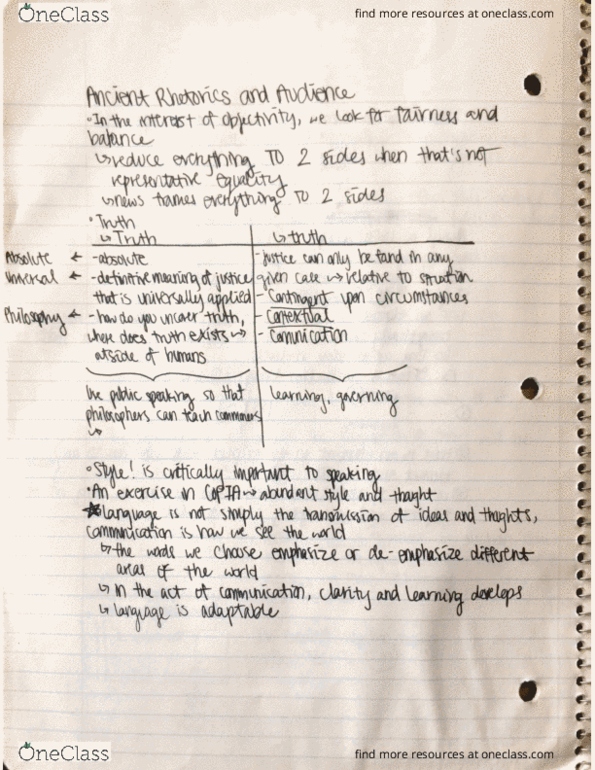 OneClass
find more resources at oneclass.com
Ancient Rhetorics and Audience
• In the interest of objectivity, we look for fairness and
balance
↳ reduce everything TO 2 sides when that's not
representative equality
↳ news frames everything TO 2 sides
• Truth
↳ Truth
↳ truth
Absolute ← - absolute
Universal ← - definitive meaning of justice
that is universally applied
Philosophy ← - how do you uncover truth,
where does truth exists ↝
outside of humans
- justice can only be found in any
given case ↝ relative to situation
- Contingent upon circumstances
- Contextual
- Comunication
use public speaking so that
philosophers can teach commoners
learning, governing
• Style! is critically important to speaking
• An exercise in COPIA ↝ abundant style and thought
★ language is not simply the transmission of ideas and thoughts,
communication is how we see the world
↳ the words we choose emphasize or de-emphasize different
areas of the world
↳ in the act of communication, clarity and learning develops
↳ language is adaptable
OneClass
find more resources at oneclass.com